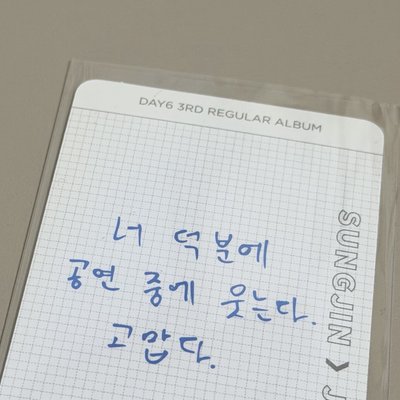 DAY6 3RD REGULAR ALBUM
너 덕분에
공연 중에 웃는다.
고맙다.
SUNGJIN > J